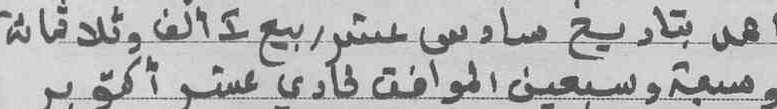 اهـ بتاريخ سادس عشر ربيع ٢ ألف وثلاثمائة
وسبعة وسبعين الموافق لحادي عشر أكتوبر